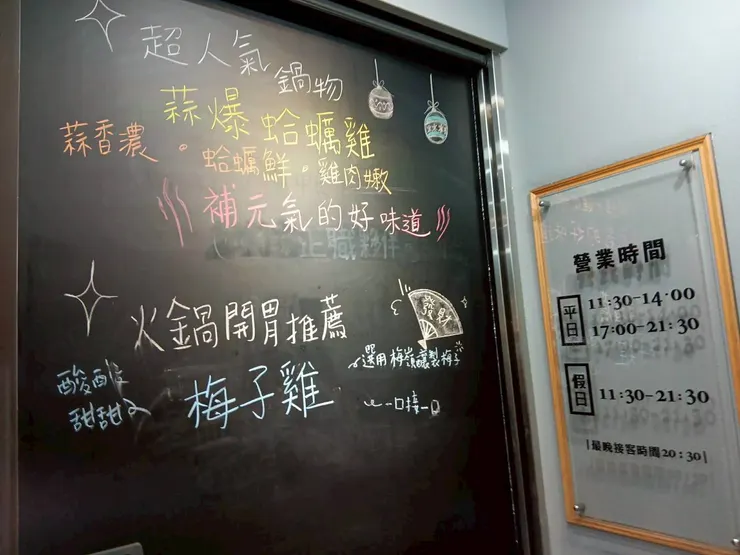 超人氣
鍋物
蒜爆蛤蠣雞
蒜香濃・蛤蠣鮮・雞肉嫩
補元氣的好味道
火鍋開胃推薦
酸酸
甜甜
梅子雞
選用梅嶺釀製梅子
一口接一口
營業時間
平日
11:30-14:00
17:00-21:30
假日
11:30-21:30
|最晚接客時間20:30|